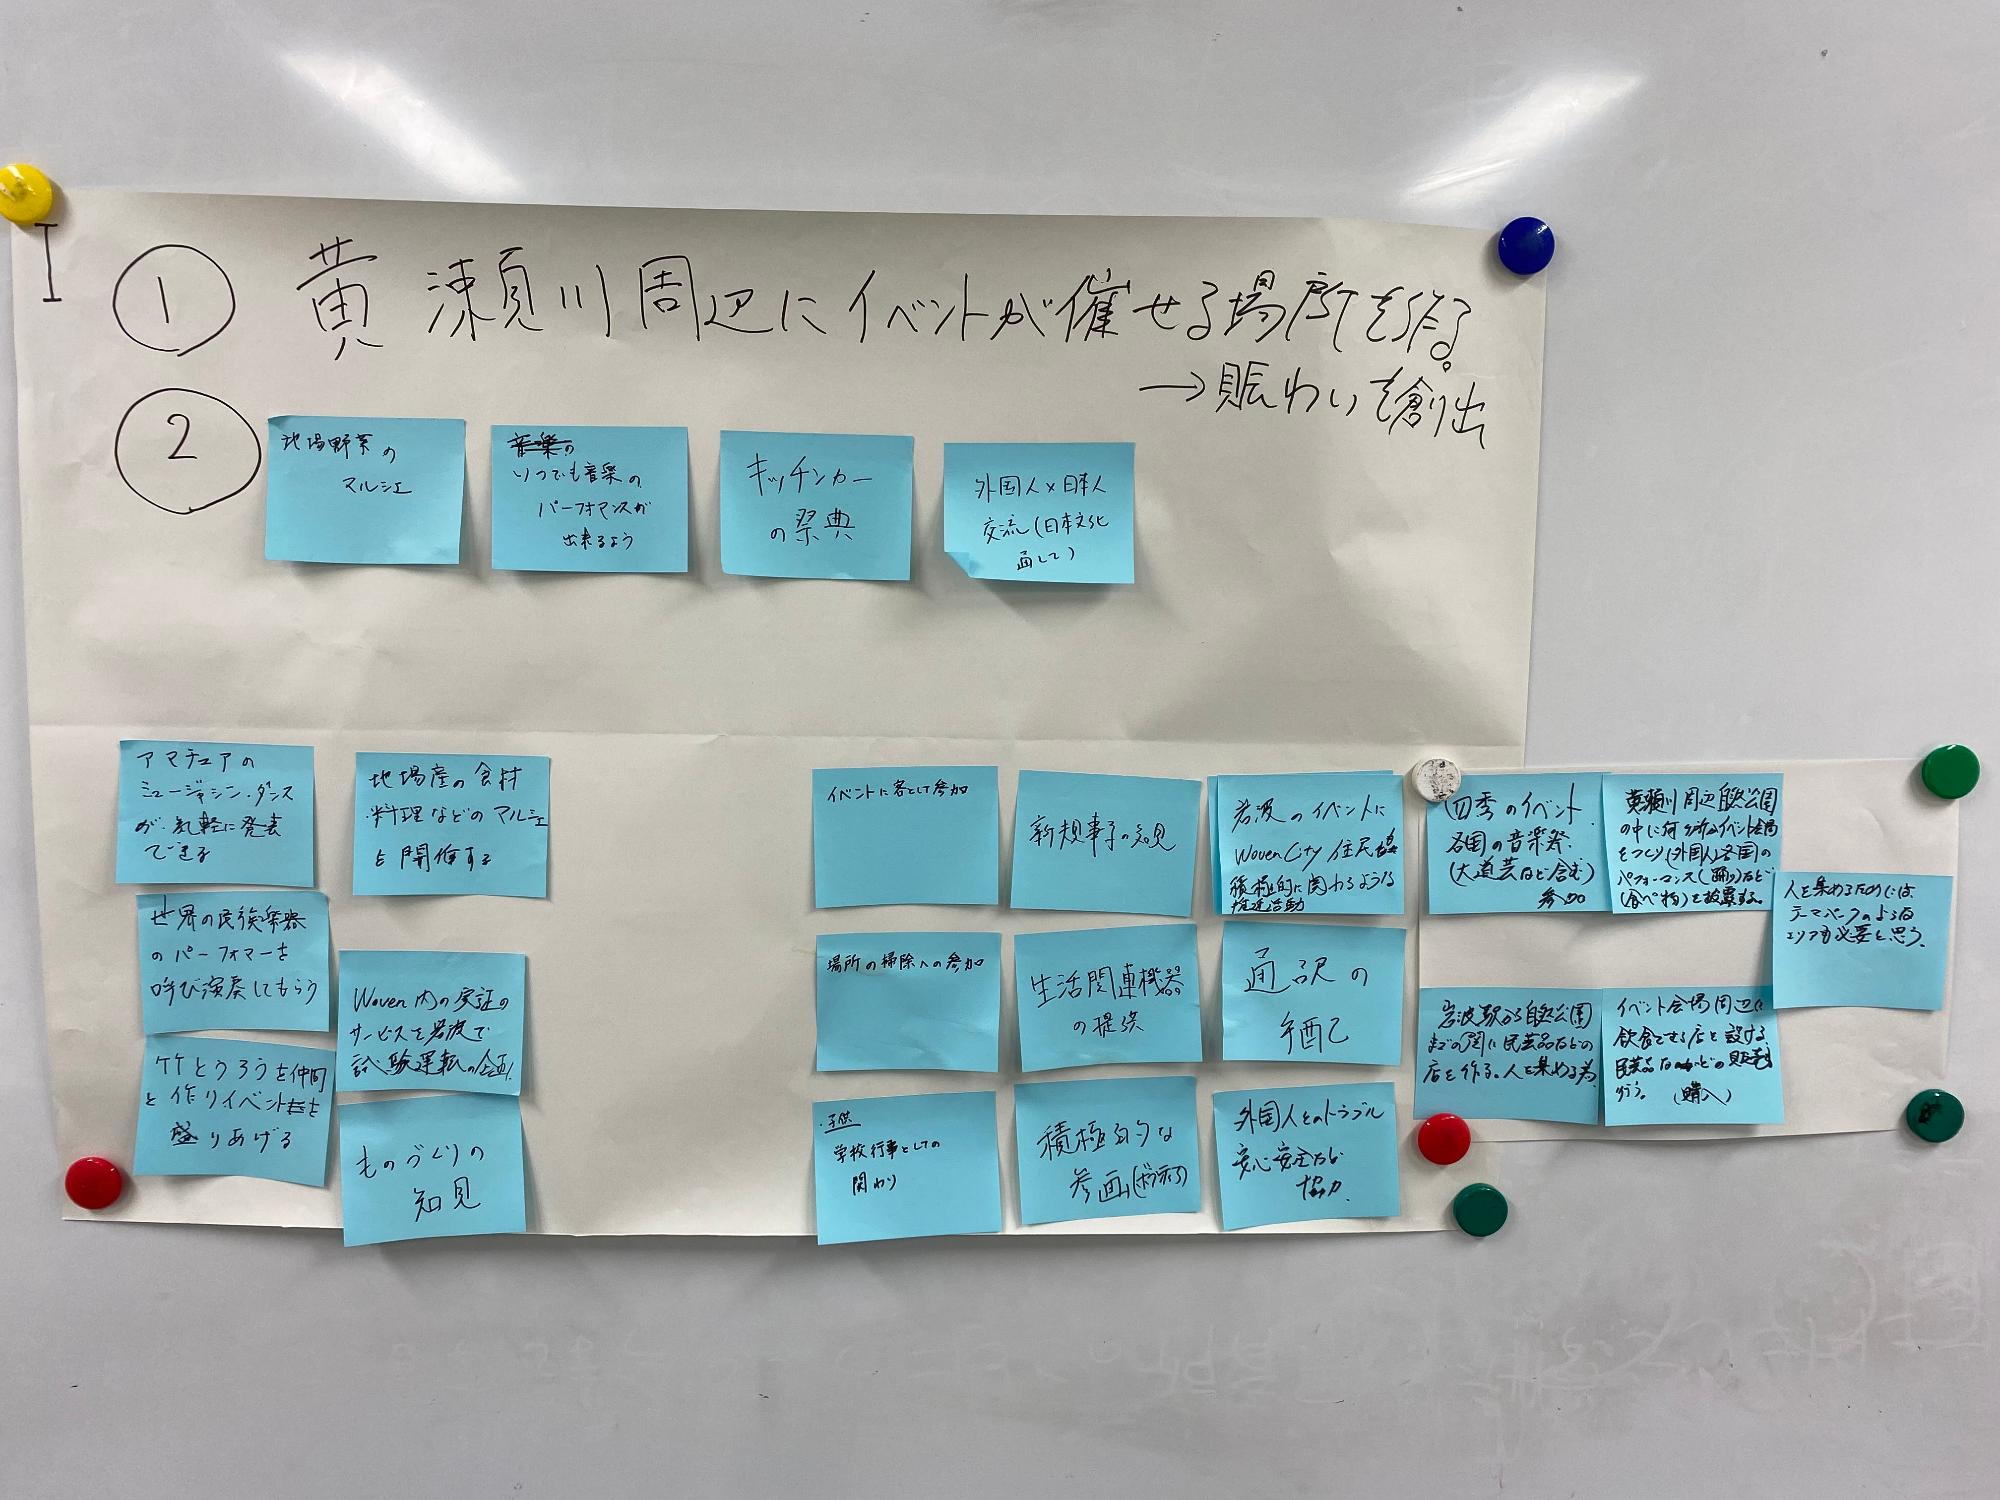 ① 黄瀬川周辺にイベントが催せる場所を作る。
→賑わいを創出
②
地場野菜の
マルシェ
音楽の
いつでも音楽の
パーフォマンスが
出来るよう
キッチンカー
の祭典
外国人×日本人
交流(日本文化
通して)
アマチュアの
ミュージシャン・ダンス
が、気軽に発表
できる
地場産の食材
料理などのマルシェ
を開催する
世界の民族楽器
のパーフォマーを
呼び演奏してもらう
Woven内の実証の
サービスを岩波で
試験運転の企画
竹とうろうを仲間
と作りイベントを
盛りあげる
ものづくりの
知見
イベントに客として参加
新規事業の知見
岩波のイベントに
Woven City 住民
積極的に関わるような
推進活動
場所の掃除への参加
生活関連機器
の提供
通訳の
手配
・子供
学校行事としての
関わり
積極的な
参画(ボランティア)
外国人とのトラブル
安心安全など
協力
四季のイベント
各国の音楽祭
(大道芸など含む)
参加
黄瀬川周辺自然公園
の中に何ヶ所かイベント会場
をつくり(外国人)各国の
パフォーマンス(踊り)など
(食べ物)を披露する。
人を集めるためには、
テーマパークのような
エリアも必要と思う。
岩波駅から自然公園
までの間に民芸品などの
店を作る。人を集める為
イベント会場周辺に
飲食できる店を設ける
民芸品などの販売も
行う。(購入)